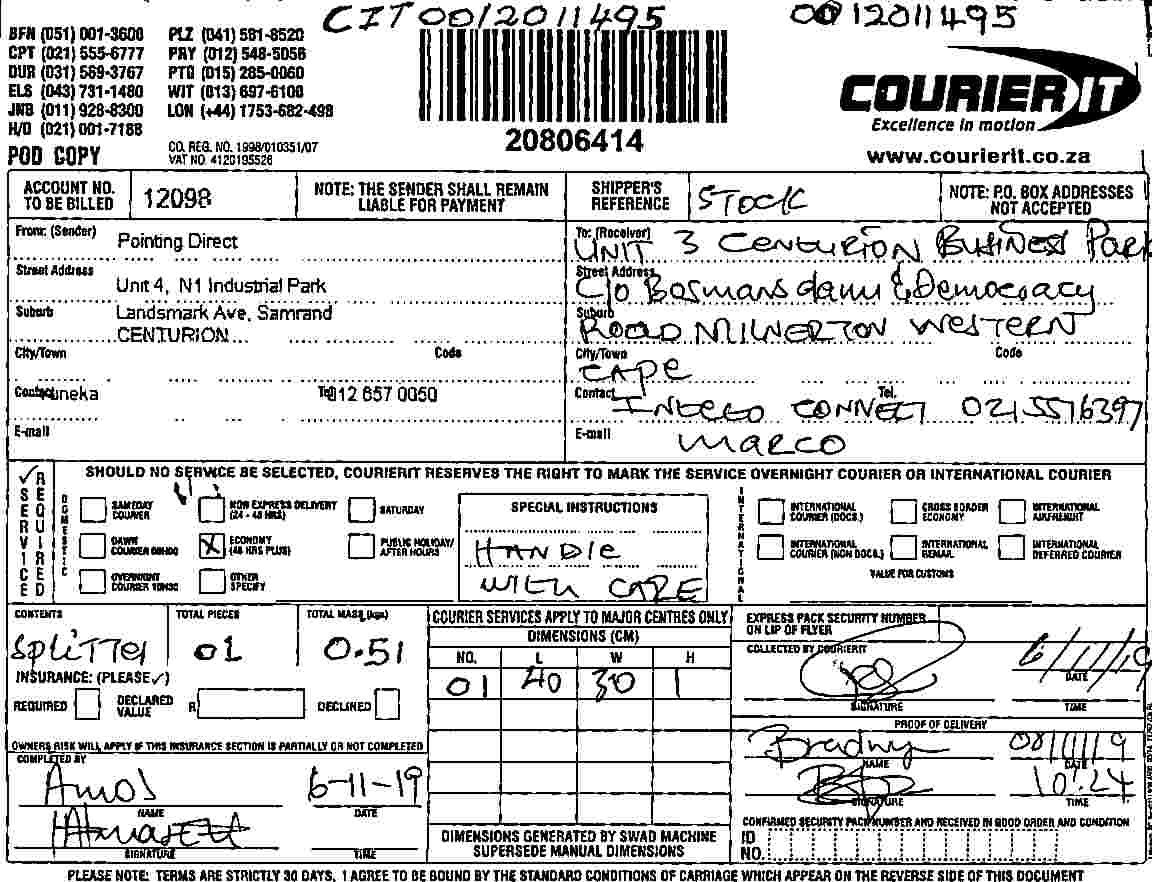 CIT0012011495 0012011495
BFN (051) 001-3600 PLZ (041) 581-8520
CPT (021) 555-6777 PRY (012) 548-5056
DUR (031) 569-3767 PTG (015) 285-0060
ELS (043) 731-1480 WIT (013) 697-6100
JNB (011) 928-8300 LON (+44) 1753-682-498
H/O (021) 001-7188
POD COPY
CO. REG. NO. 1998/010351/07
VAT NO. 4120195526
20806414
COURIER IT
Excellence in motion
www.courierit.co.za
ACCOUNT NO. TO BE BILLED 12098
NOTE: THE SENDER SHALL REMAIN LIABLE FOR PAYMENT
SHIPPER'S REFERENCE STOCK
NOTE: P.O. BOX ADDRESSES NOT ACCEPTED
From: (Sender) Pointing Direct
Street Address Unit 4, N1 Industrial Park
Suburb Landsmark Ave, Samrand
CENTURION
City/Town Code
Contact uneka Tel 012 657 0050
E-mail
To: (Receiver) UNIT 3 CENTURION BUSINESS PARK
Street Address C/o Bosmansdam & Democracy
Suburb ROAD MILNERTON WESTERN
City/Town CAPE Code
Contact CONNECT Tel. 0215516397
E-mail MARCO
SERVICE REQUIRED
SHOULD NO SERVICE BE SELECTED, COURIERIT RESERVES THE RIGHT TO MARK THE SERVICE OVERNIGHT COURIER OR INTERNATIONAL COURIER
DOMESTIC
SAMEDAY COURIER
NON EXPRESS DELIVERY (24 - 48 HRS)
SATURDAY
DAWN COURIER
X ECONOMY (48 HRS PLUS)
PUBLIC HOLIDAY/ AFTER HOURS
OVERNIGHT COURIER
OTHER SPECIFY
SPECIAL INSTRUCTIONS
HANDLE
WITH CARE
INTERNATIONAL
INTERNATIONAL COURIER (DOCS.)
CROSS BORDER ECONOMY
INTERNATIONAL AIRFREIGHT
INTERNATIONAL COURIER (NON DOCS.)
INTERNATIONAL REMAIL
INTERNATIONAL DEFERRED COURIER
VALUE FOR CUSTOMS
CONTENTS Splitter
TOTAL PIECES 01
TOTAL MASS (kgs) 0.51
INSURANCE: (PLEASE ✓)
REQUIRED DECLARED VALUE R DECLINED
OWNERS RISK WILL APPLY IF THIS INSURANCE SECTION IS PARTIALLY OR NOT COMPLETED
COMPLETED BY
Amos 6-11-19
NAME DATE
SIGNATURE TIME
COURIER SERVICES APPLY TO MAJOR CENTRES ONLY
DIMENSIONS (CM)
NO. L W H
01 40 30 1
DIMENSIONS GENERATED BY SWAD MACHINE SUPERSEDE MANUAL DIMENSIONS
EXPRESS PACK SECURITY NUMBER ON LIP OF FLYER
COLLECTED BY COURIERIT
6/11/19
DATE
SIGNATURE TIME
PROOF OF DELIVERY
NAME DATE
10:24
SIGNATURE TIME
CONFIRMED SECURITY PACK NUMBER AND RECEIVED IN GOOD ORDER AND CONDITION
ID NO.
PLEASE NOTE: TERMS ARE STRICTLY 30 DAYS, I AGREE TO BE BOUND BY THE STANDARD CONDITIONS OF CARRIAGE WHICH APPEAR ON THE REVERSE SIDE OF THIS DOCUMENT